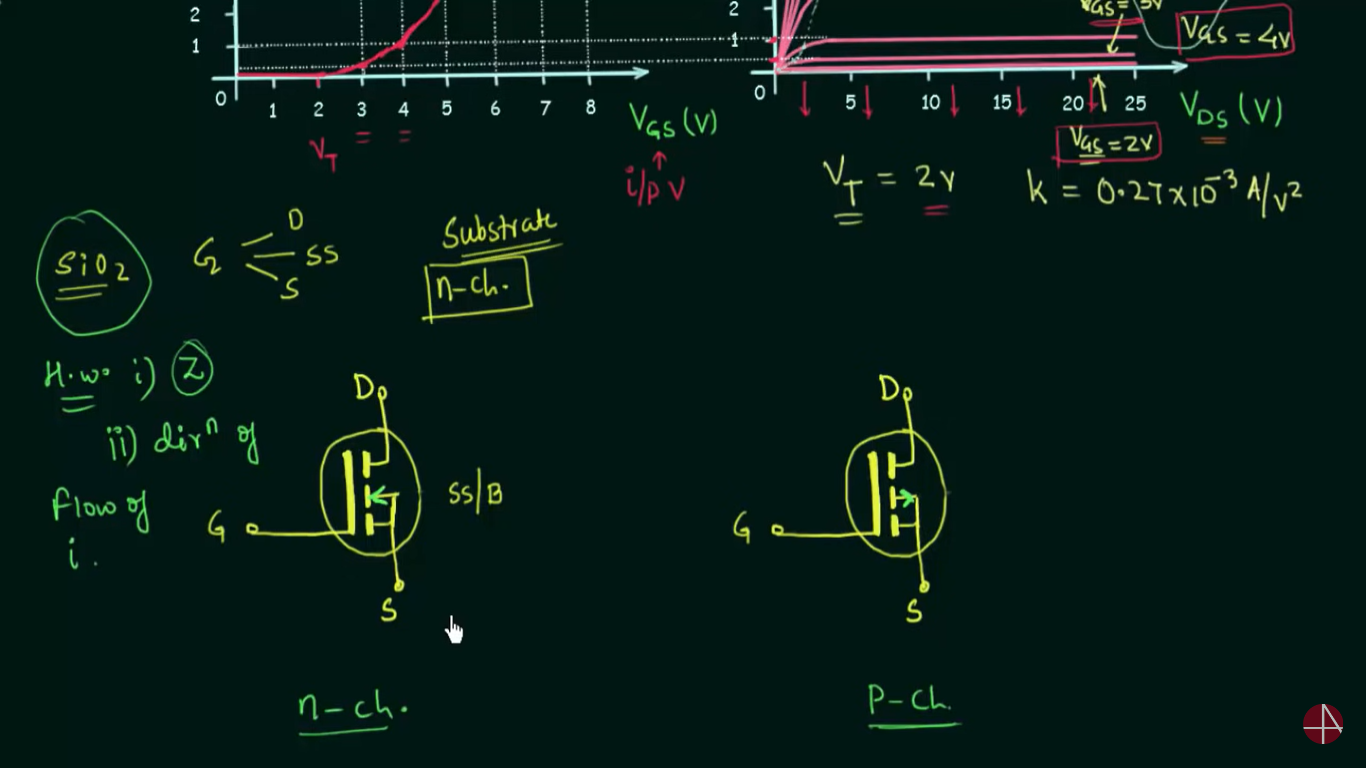 2
1
0
1 2 3 4 5 6 7 8
VGS (V)
VT = =
i/p V
2
1
0
5 10 15 20 25
VDS (V)
VGS = 4V
VGS = 2V
VT = 2V
k = 0.27×10⁻³ A/V²
SiO2
G
D
SS
S
Substrate
n-ch.
H.W. i) Z
ii) dirⁿ of
flow of
i.
D
SS/B
G
S
n-ch.
D
G
S
P-Ch.